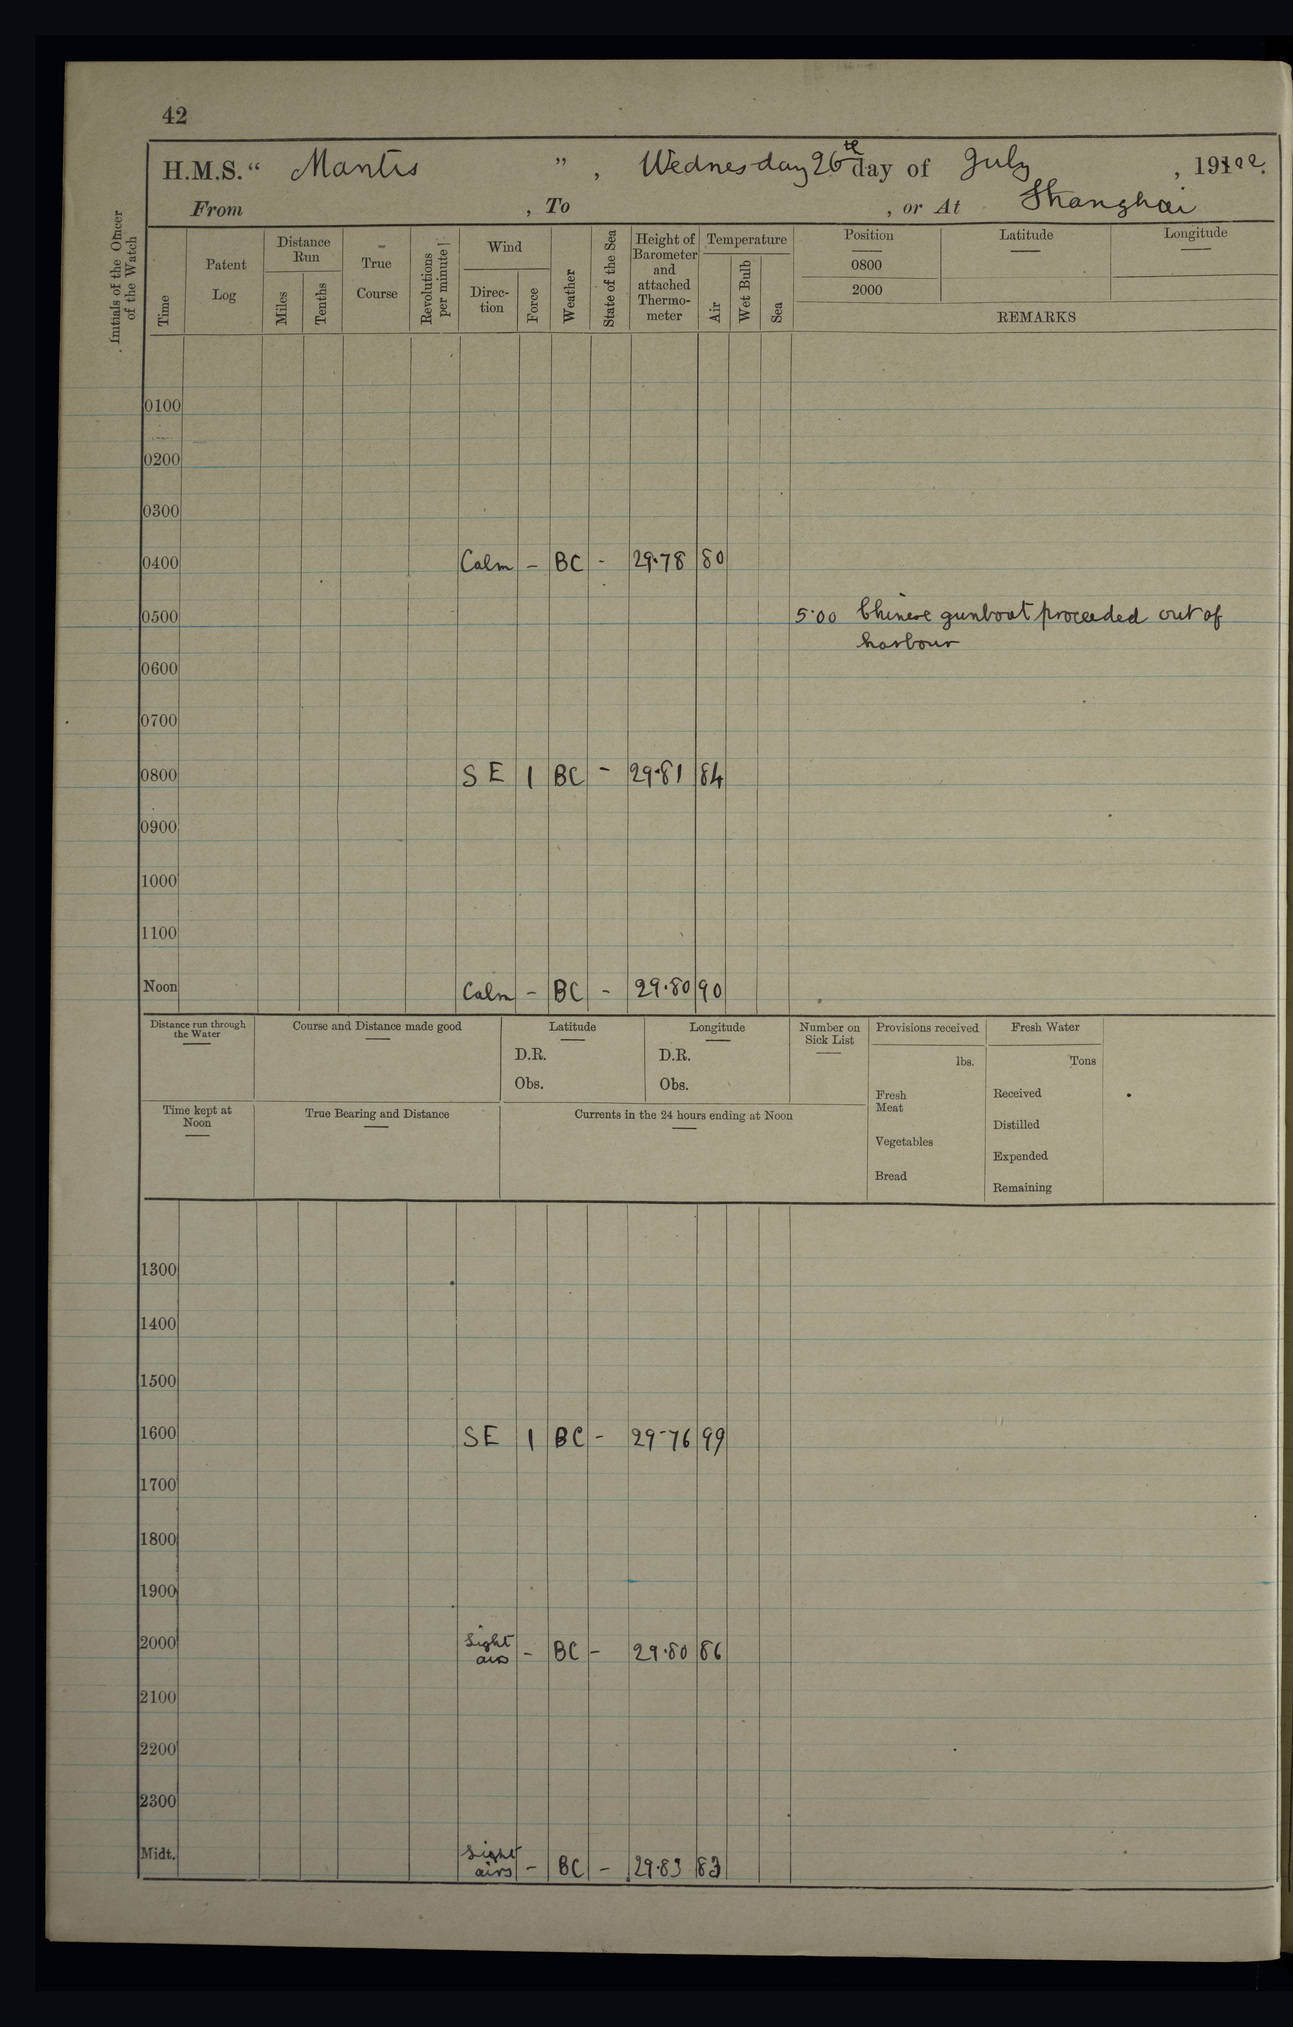 42
H.M.S. “ Mantis ” , Wednesday 26th day of July , 1922.
From , To , or At Shanghai
Initials of the Officer of the Watch
Time
Patent Log
Distance Run
Miles
Tenths
True Course
Revolutions per minute
Wind
Direc-tion
Force
Weather
State of the Sea
Height of Barometer and attached Thermo-meter
Temperature
Air
Wet Bulb
Sea
Position Latitude Longitude
0800
2000
REMARKS
0100
0200
0300
0400 Calm - BC - 29.78 80
0500 5.00 Chinese gunboat proceeded out of
harbour
0600
0700
0800 S E 1 BC - 29.81 84
0900
1000
1100
Noon Calm - BC - 29.80 90
Distance run through the Water
Course and Distance made good
Latitude
D.R.
Obs.
Longitude
D.R.
Obs.
Number on Sick List
Provisions received
lbs.
Fresh Meat
Vegetables
Bread
Fresh Water
Tons
Received
Distilled
Expended
Remaining
Time kept at Noon
True Bearing and Distance
Currents in the 24 hours ending at Noon
1300
1400
1500
1600 SE 1 BC - 29.76 99
1700
1800
1900
2000 Light airs - BC - 29.80 86
2100
2200
2300
Midt. Light airs - BC - 29.83 83